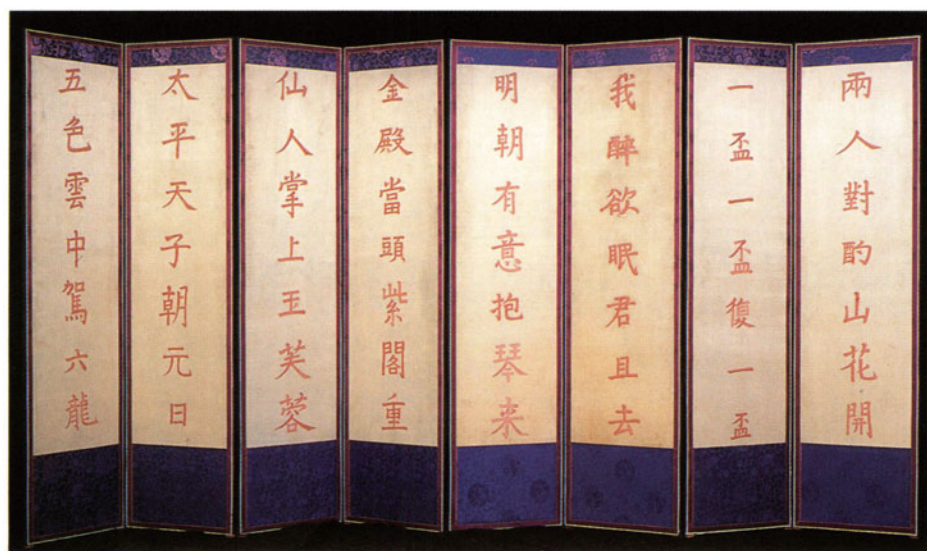 兩人對酌山花開
一盃一盃復一盃
我醉欲眠君且去
明朝有意抱琴来
金殿當頭紫閣重
仙人掌上玉芙蓉
太平天子朝元日
五色雲中駕六龍